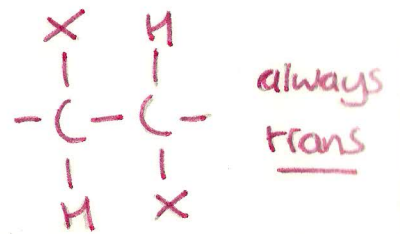 X H
- C - C -
H X
always
trans